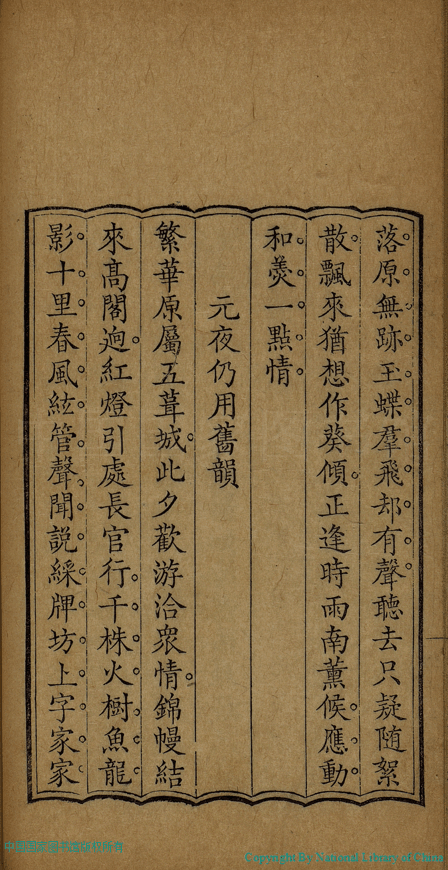 落原無跡玉蝶羣飛却有聲聽去只疑随絮
散飄來猶想作葵傾正逢時雨南薰候應動
和羮一點情
元夜仍用舊韻
繁華原屬五葺城此夕歡游洽衆情錦幔結
來高閣逈紅燈引處長官行千株火樹魚龍
影十里春風絃管聲聞説綵牌坊上字家家
Copyright By National Library of China